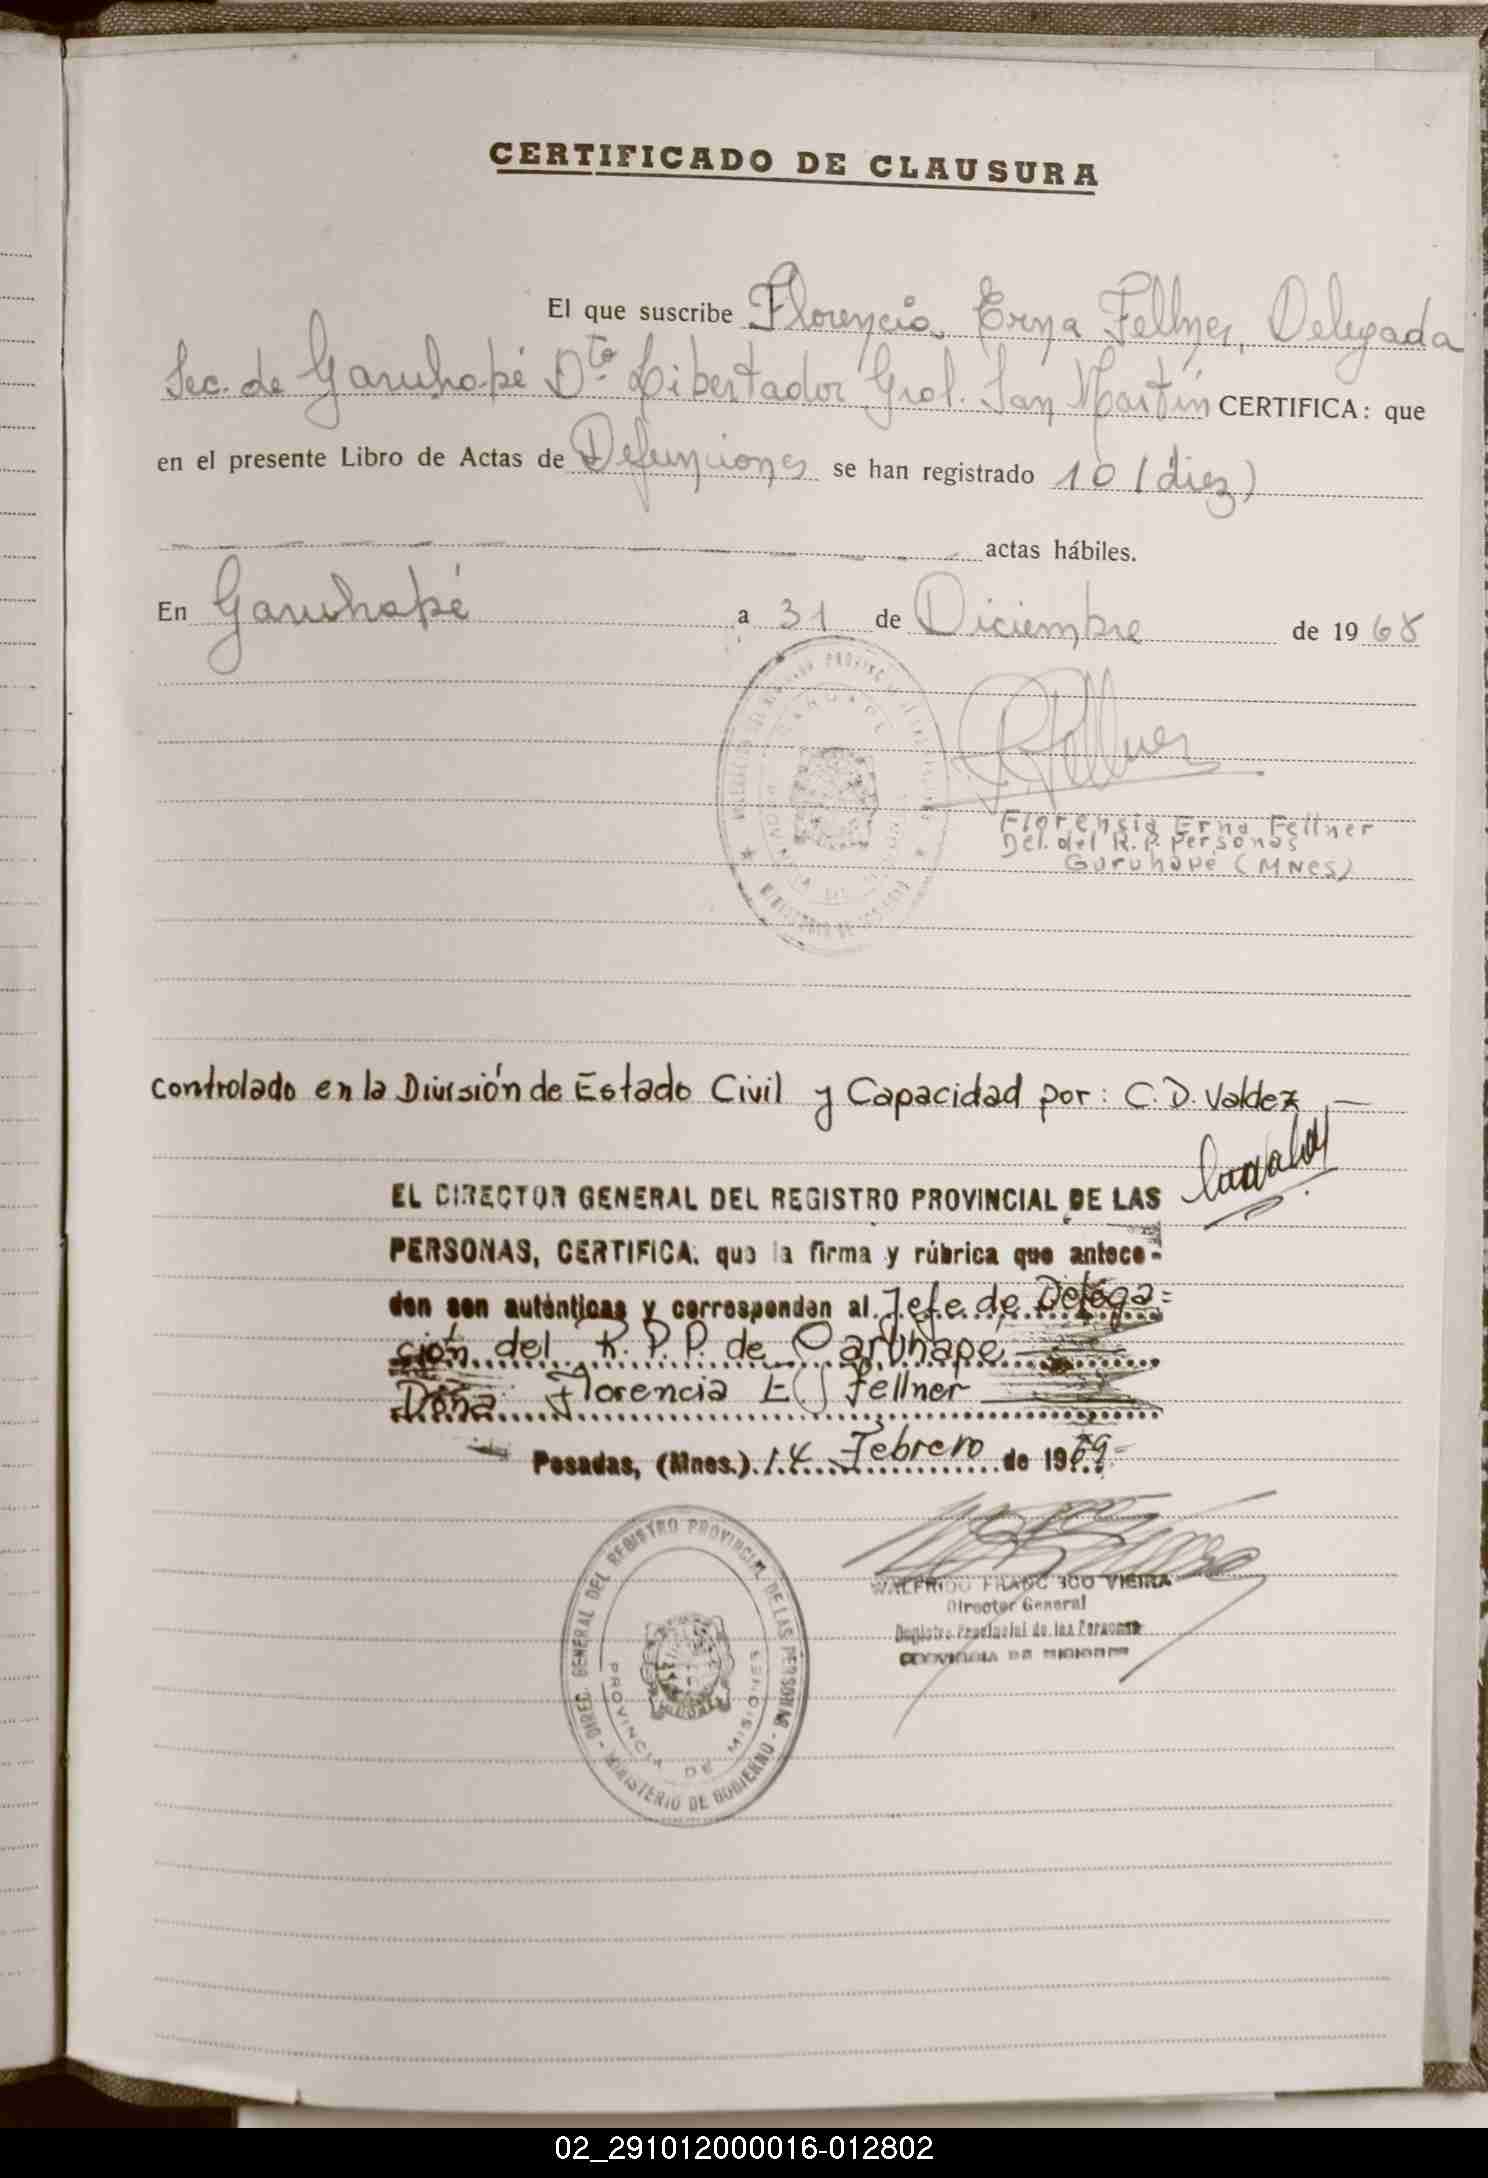 CERTIFICADO DE CLAUSURA
El que suscribe Florencia, Erna Fellner, Delegada
Sec. de Garuhapé Dto. Libertador Gral. San Martín CERTIFICA: que
en el presente Libro de Actas de Defunciones se han registrado 10 (diez)
actas hábiles.
En Garuhapé a 31 de Diciembre de 1968
Fellner
Florensia Erna Fellner
Del. del R. P. Personas
Garuhapé (MNES)
controlado en la División de Estado Civil y Capacidad por: C. D. Valdez
EL DIRECTOR GENERAL DEL REGISTRO PROVINCIAL DE LAS
PERSONAS, CERTIFICA: que la firma y rúbrica que antece-
den son auténticas y corresponden al Jefe de Delega=
ción del R. P. P. de Garuhapé
Doña Florencia E. Fellner
Posadas, (Mnes.) 14 Febrero de 1969-
DIREC. GENERAL DEL REGISTRO PROVINCIAL DE LAS PERSONAS - MINISTERIO DE GOBIERNO -
PROVINCIA DE MISIONES
WALFRIDO FRANCISCO VIEIRA
Director General
Registro Provincial de las Personas
PROVINCIA DE MISIONES
02_291012000016-012802